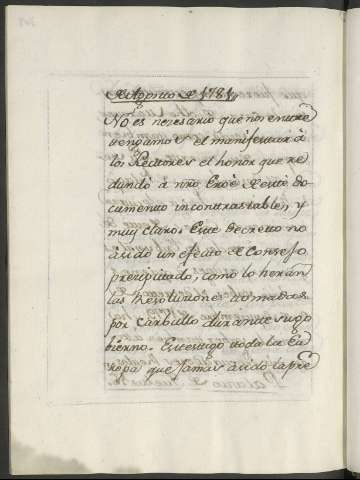 de Agosto de 1781,,
No es necesario que nos entre
vengamos el manifestar à
los Lectores el honor que re
dundò a nro Eroè de este do-
cumento incontrastable, y
muy claro. Este decretto no
à sido un efecto de Consejo
precipitado, como lo heràn
las Resoluciones tomadas
por Carballo durante su go
bierno. Es testigo toda la Eu
ropa que jamas à sido la pre